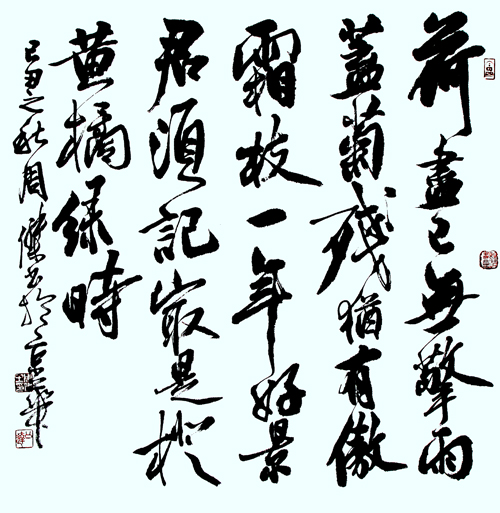 荷盡已無擎雨
蓋菊殘猶有傲
霜枝一年好景
君須記最是橙
黄橘緑時
己丑之秋周傑書於京華